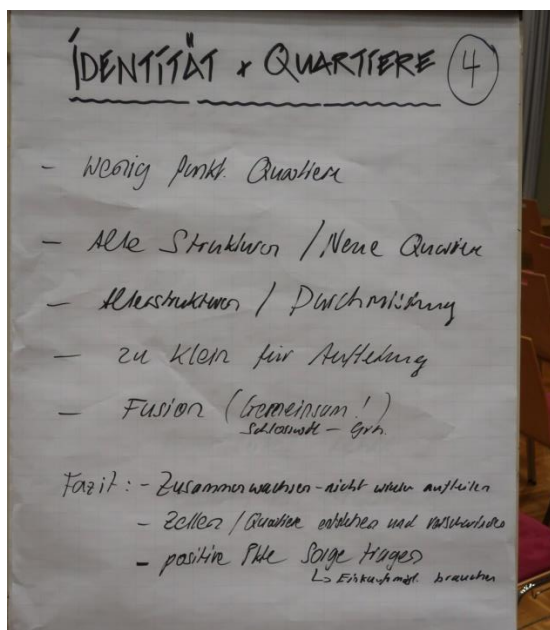 IDENTITÄT + QUARTIERE 4
- Wenig funkt. Quartiere
- Alte Strukturen / Neue Quartiere
- Altersstrukturen / Durchmischung
- zu klein für Aufteilung
- Fusion (Gemeinsam!)
Schlosswil – Grh.
Fazit: - Zusammenwachsen - nicht wieder aufteilen
- Zellen / Quartiere entstehen und
- positive Pkte Sorge tragen
↳ Einkaufmögl. brauchen